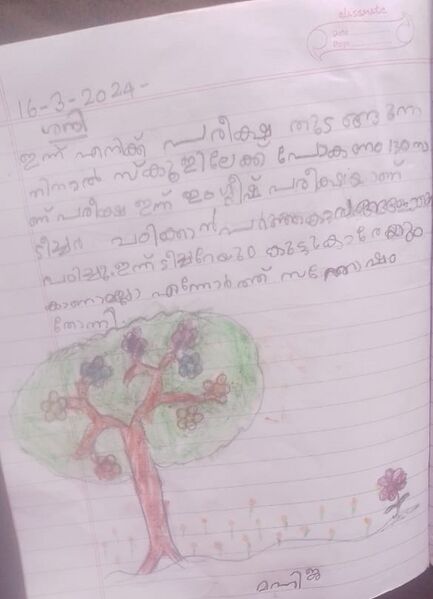 classmate
Date
Page
16-3-2024-
ശനി
ഇന്ന് എനിക്ക് പരീക്ഷ തുടങ്ങുന്ന
തിനാൽ സ്കൂളിലേക്ക് പോകണം 1:30 നാ
ണ് പരീക്ഷ ഇന്ന് ഇംഗ്ലീഷ് പരീക്ഷയാണ്
ടീച്ചർ പഠിക്കാൻ
പഠിച്ചു. ഇന്ന് ടീച്ചറേയും കൂട്ടുകാരേയും
കാണാമല്ലോ എന്നോർത്ത് സന്തോഷം
തോന്നി.